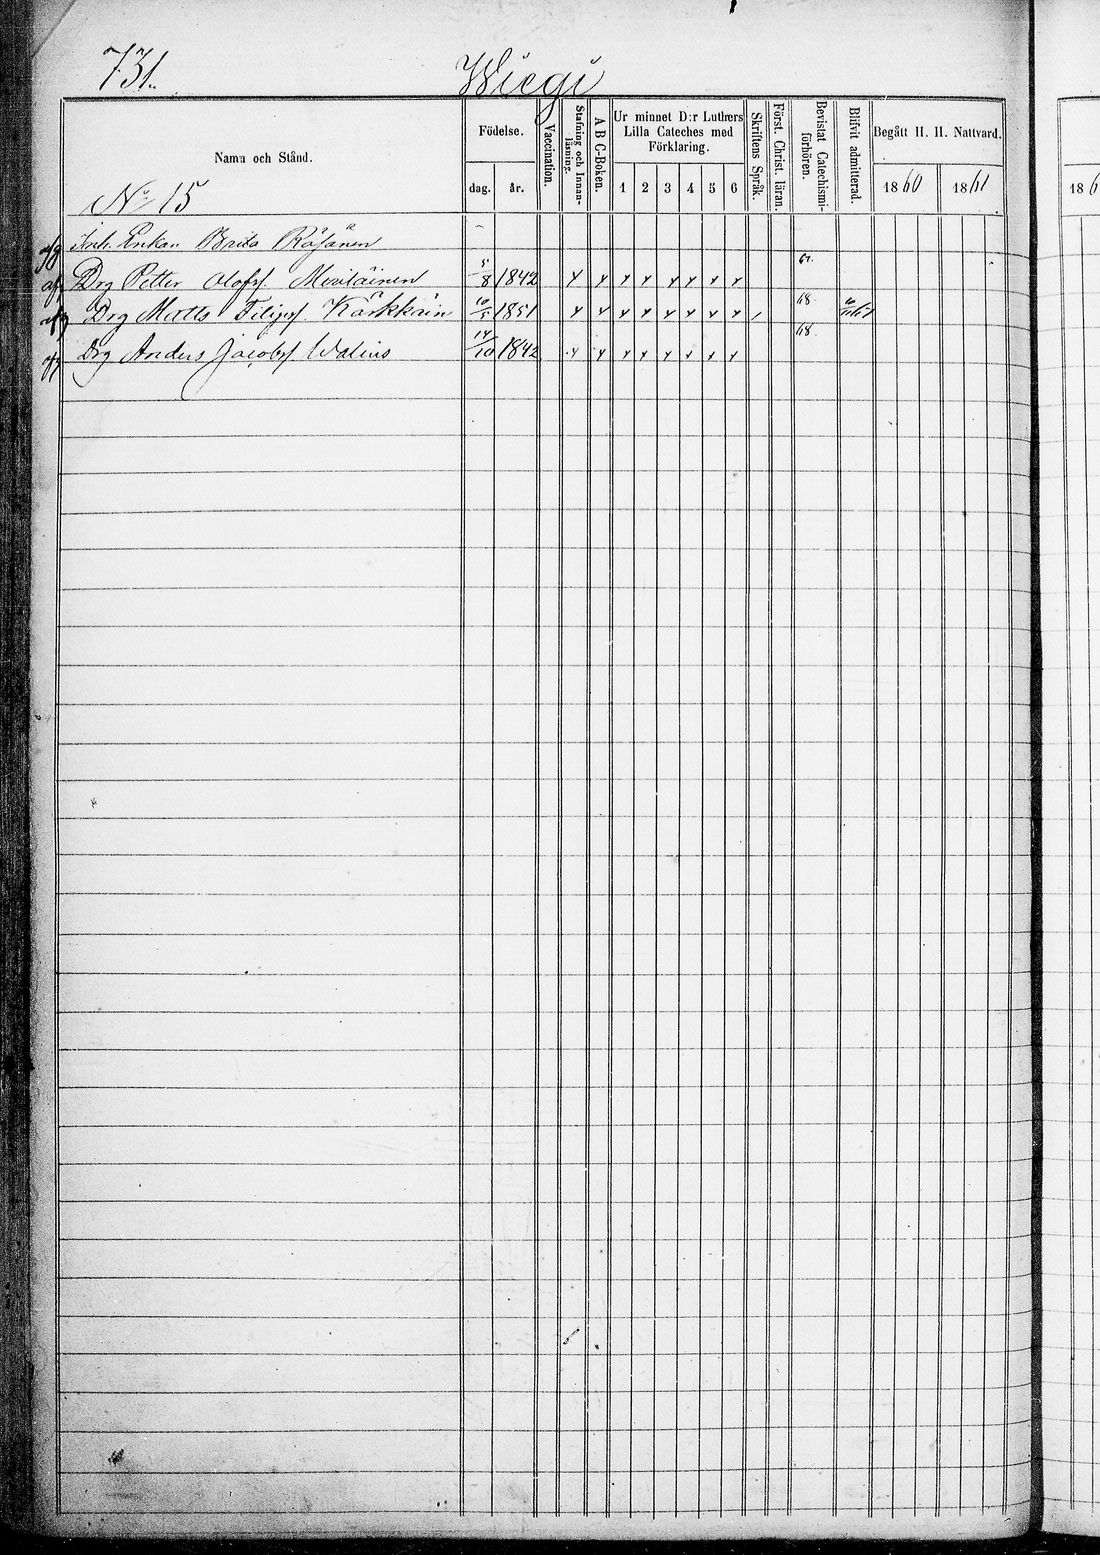 731.
Wiegi
Namn och Stånd.
Födelse.
dag. år.
Vaccination.
Stafning och Innan-
läsning.
A B C-Boken.
Ur minnet D:r Luthers
Lilla Cateches med
Förklaring.
1 2 3 4 5 6
Skriftens Språk.
Först. Christ. läran.
Bevistat Catechismi-
förhören.
Blifvit admitterad.
Begått H. H. Nattvard.
1860 1861
186
No 15
Inh. Enkan Brita Räisänen
Drg Petter Olofss. 5/8 1842
Drg Matts Filipss Kärkkäin 10/5 1851 68
Drg Anders Jacobss Walius 14/10 1842 68